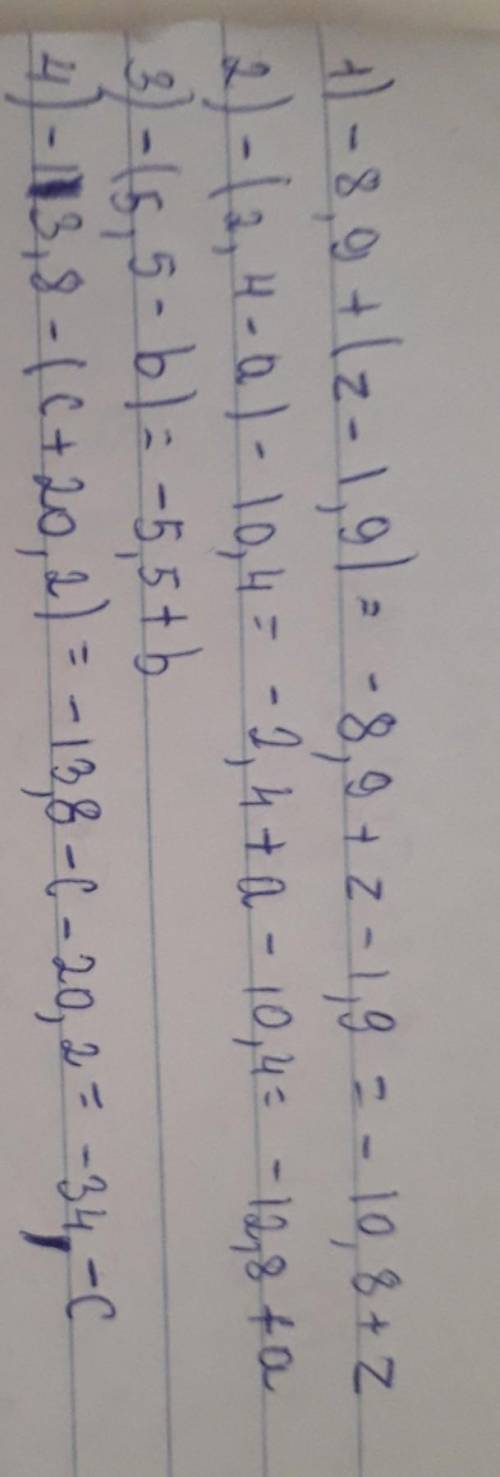 1) -8,9+(z-1,9)= -8,9+z-1,9 = -10,8+z
2) -(2,4-a)-10,4= -2,4+a-10,4= -12,8+a
3) -(5,5-b)= -5,5+b
4) -13,8-(c+20,2)= -13,8-c-20,2= -34,-c